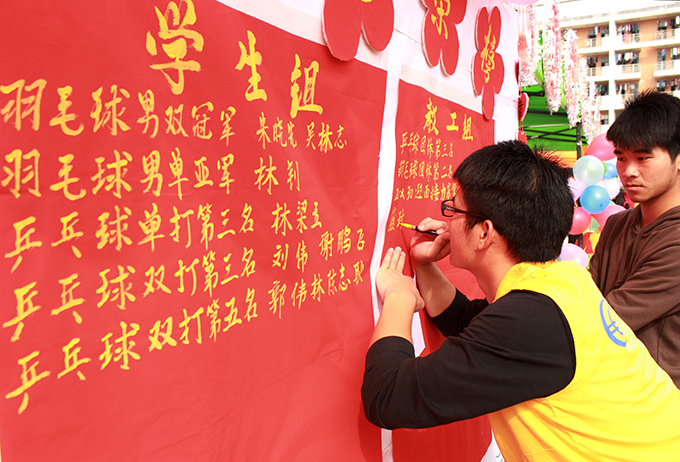 学生组
羽毛球男双冠军 朱晓光 吴林志
羽毛球男单亚军 林钊
乒乓球单打第三名 林梁玉
乒乓球双打第三名 刘伟 谢鹏飞
乒乓球双打第五名 郭伟林 陈志聪
教工组
乒乓球团体第三名
羽毛球团体第二名